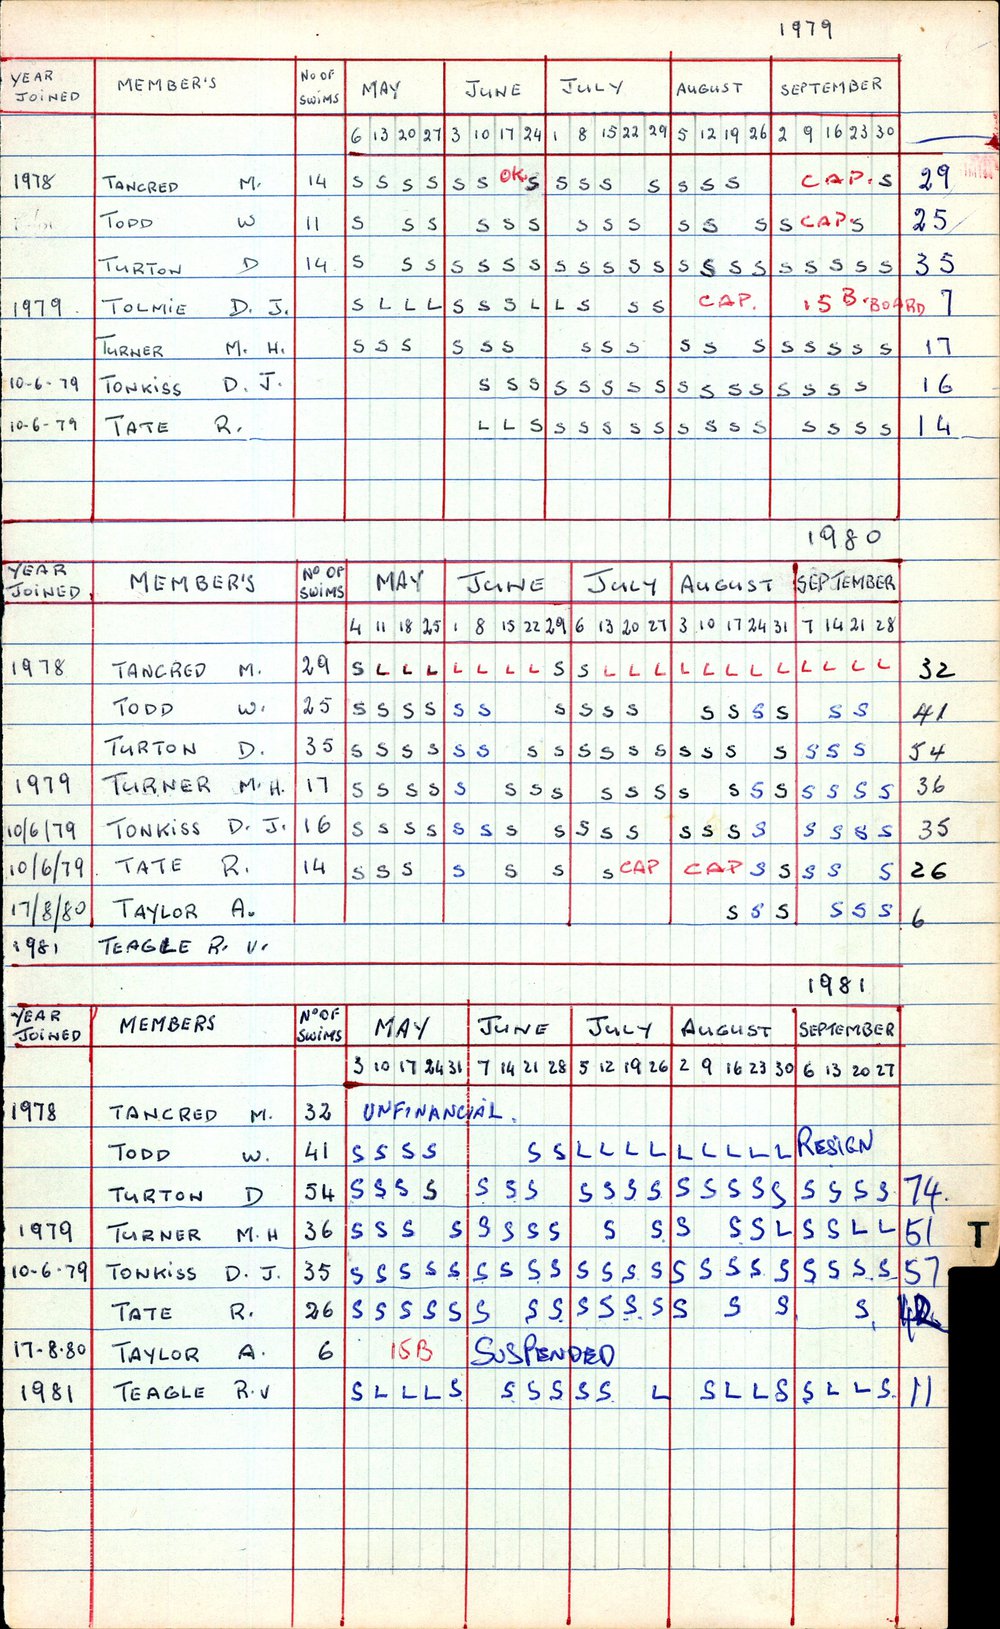 1979
YEAR JOINED MEMBER'S No OF SWIMS MAY JUNE JULY AUGUST SEPTEMBER
6 13 20 27 3 10 17 24 1 8 15 22 29 5 12 19 26 2 9 16 23 30
1978 TANCRED M. 14 S S S S S S OK S S S S S S S S CAP. S 29
TODD W 11 S S S S S S S S S S S S S CAP S 25
TURTON D 14 S S S S S S S S S S S S S S S S S S S S 35
1979. TOLMIE D. J. S L L L S S S L L S S S CAP. 15 B. BOARD 7
TURNER M. H. S S S S S S S S S S S S S S S S S 17
10-6-79 TONKISS D. J. S S S S S S S S S S S S S S S S 16
10-6-79 TATE R. L L S S S S S S S S S S S S S S 14
1980
YEAR JOINED MEMBER'S No OF SWIMS MAY JUNE JULY AUGUST SEPTEMBER
4 11 18 25 1 8 15 22 29 6 13 20 27 3 10 17 24 31 7 14 21 28
1978 TANCRED M. 29 S L L L L L L L S S L L L L L L L L L L L L 32
TODD W. 25 S S S S S S S S S S S S S S S S 41
TURTON D. 35 S S S S S S S S S S S S S S S S S S S 54
1979 TURNER M.H. 17 S S S S S S S S S S S S S S S S S S S S 36
10/6/79 TONKISS D. J. 16 S S S S S S S S S S S S S S S S S S S 35
10/6/79 TATE R. 14 S S S S S S S CAP CAP S S S S S 26
17/8/80 TAYLOR A. S S S S S S 6
1981 TEAGLE R. V.
1981
YEAR JOINED MEMBERS No OF SWIMS MAY JUNE JULY AUGUST SEPTEMBER
3 10 17 24 31 7 14 21 28 5 12 19 26 2 9 16 23 30 6 13 20 27
1978 TANCRED M. 32 UNFINANCIAL.
TODD W. 41 S S S S S S L L L L L L L L L RESIGN
TURTON D 54 S S S S S S S S S S S S S S S S S S S S 74.
1979 TURNER M.H 36 S S S S S S S S S S S S S L S S L L 51
10-6-79 TONKISS D. J. 35 S S S S S S S S S S S S S S S S S S S S S S 57
TATE R. 26 S S S S S S S S S S S S S S S S 42
17-8-80 TAYLOR A. 6 15B SUSPENDED
1981 TEAGLE R.V S L L L S S S S S S L S L L S S L L S 11
T